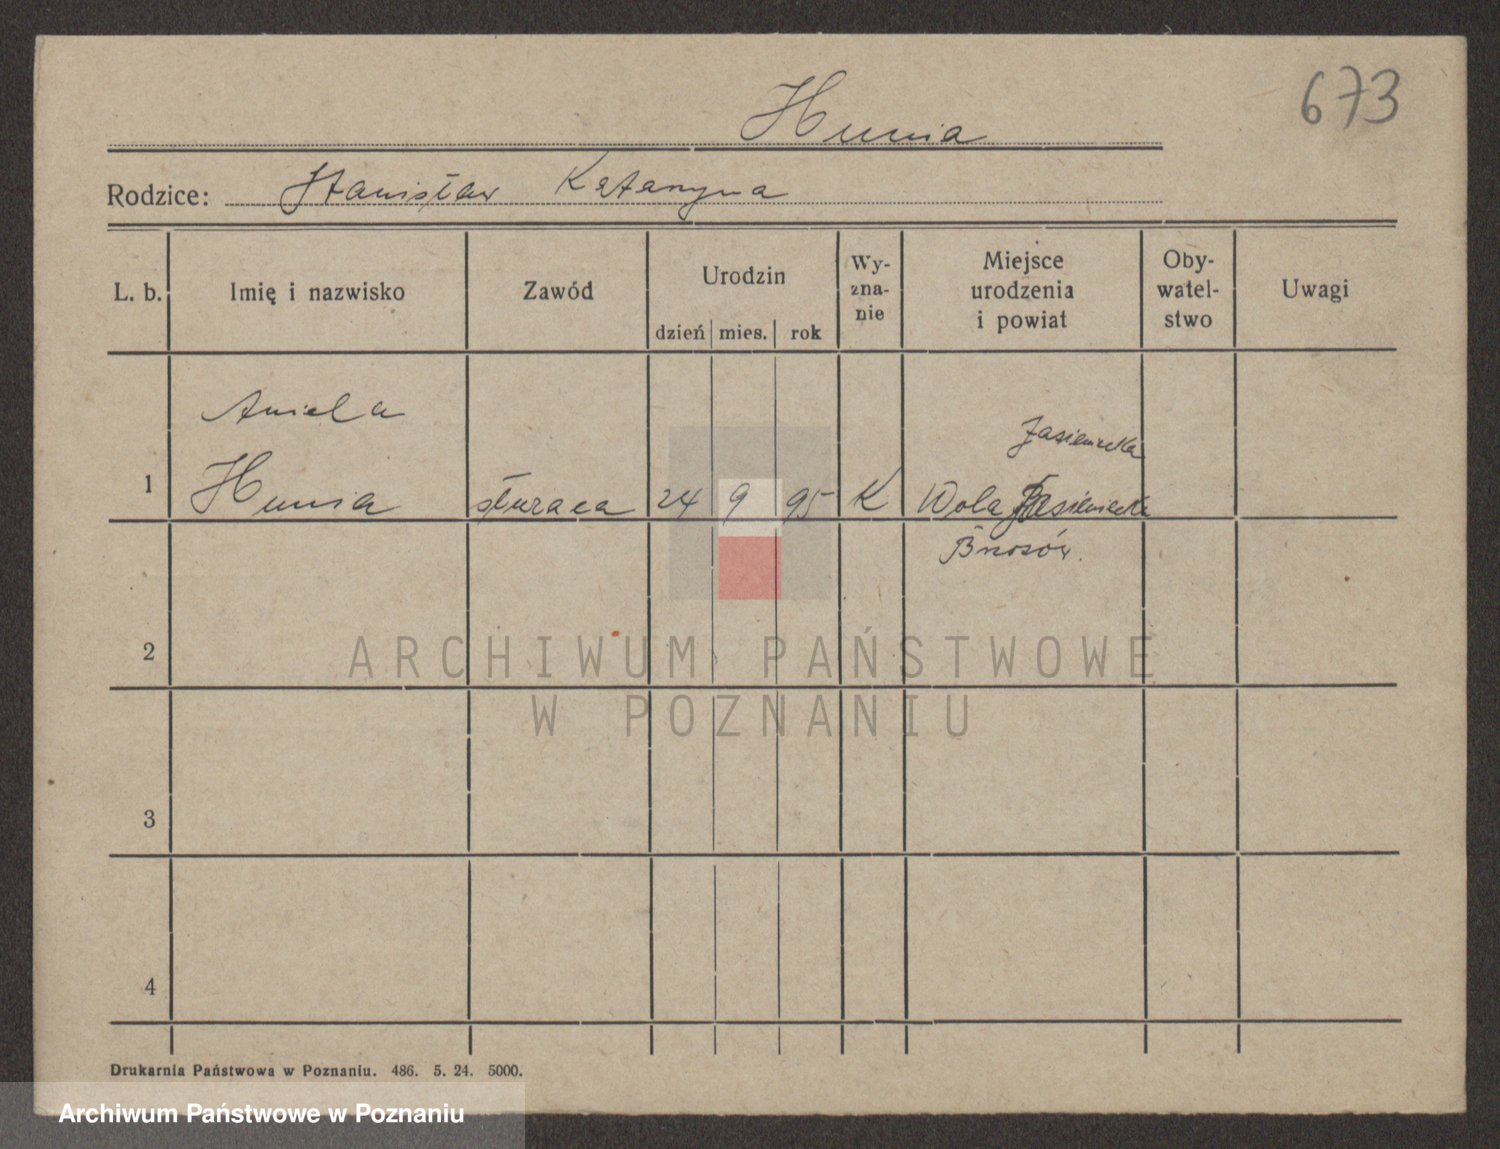 673
Hunia
Rodzice: Stanisław Katarzyna
L. b. Imię i nazwisko Zawód Urodzin Wy-zna-nie Miejsce urodzenia i powiat Oby-watel-stwo Uwagi
dzień mies. rok
Aniela Jasienicka
1 Hunia służąca 24 9 95 K Wola Jasienicka
Brzozów.
2
3
4
Drukarnia Państwowa w Poznaniu. 486. 5. 24. 5000.
ARCHIWUM PAŃSTWOWE
W POZNANIU
Archiwum Państwowe w Poznaniu